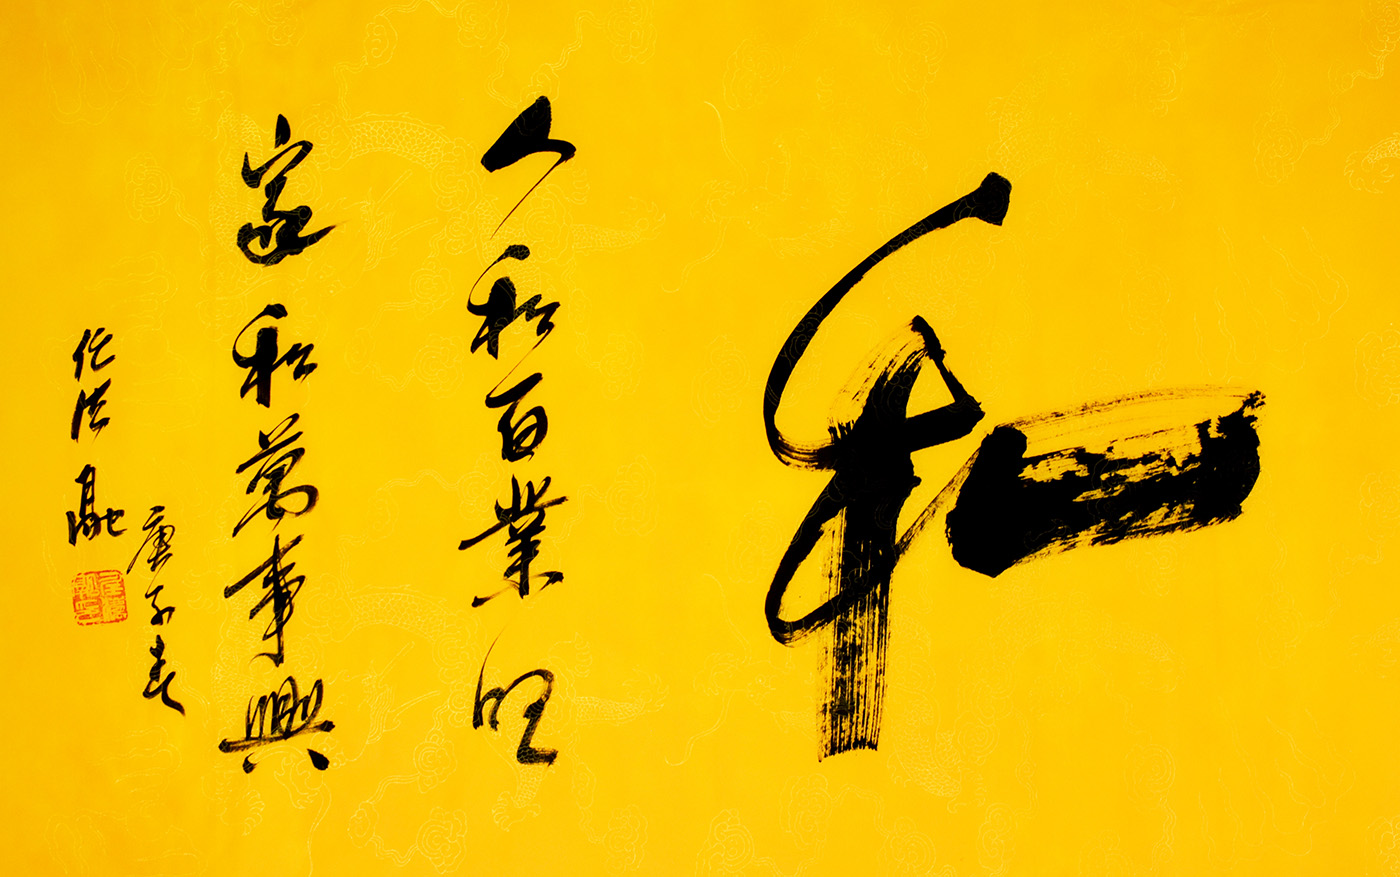 和
人和百業旺
家和萬事興
庚子春
任法融